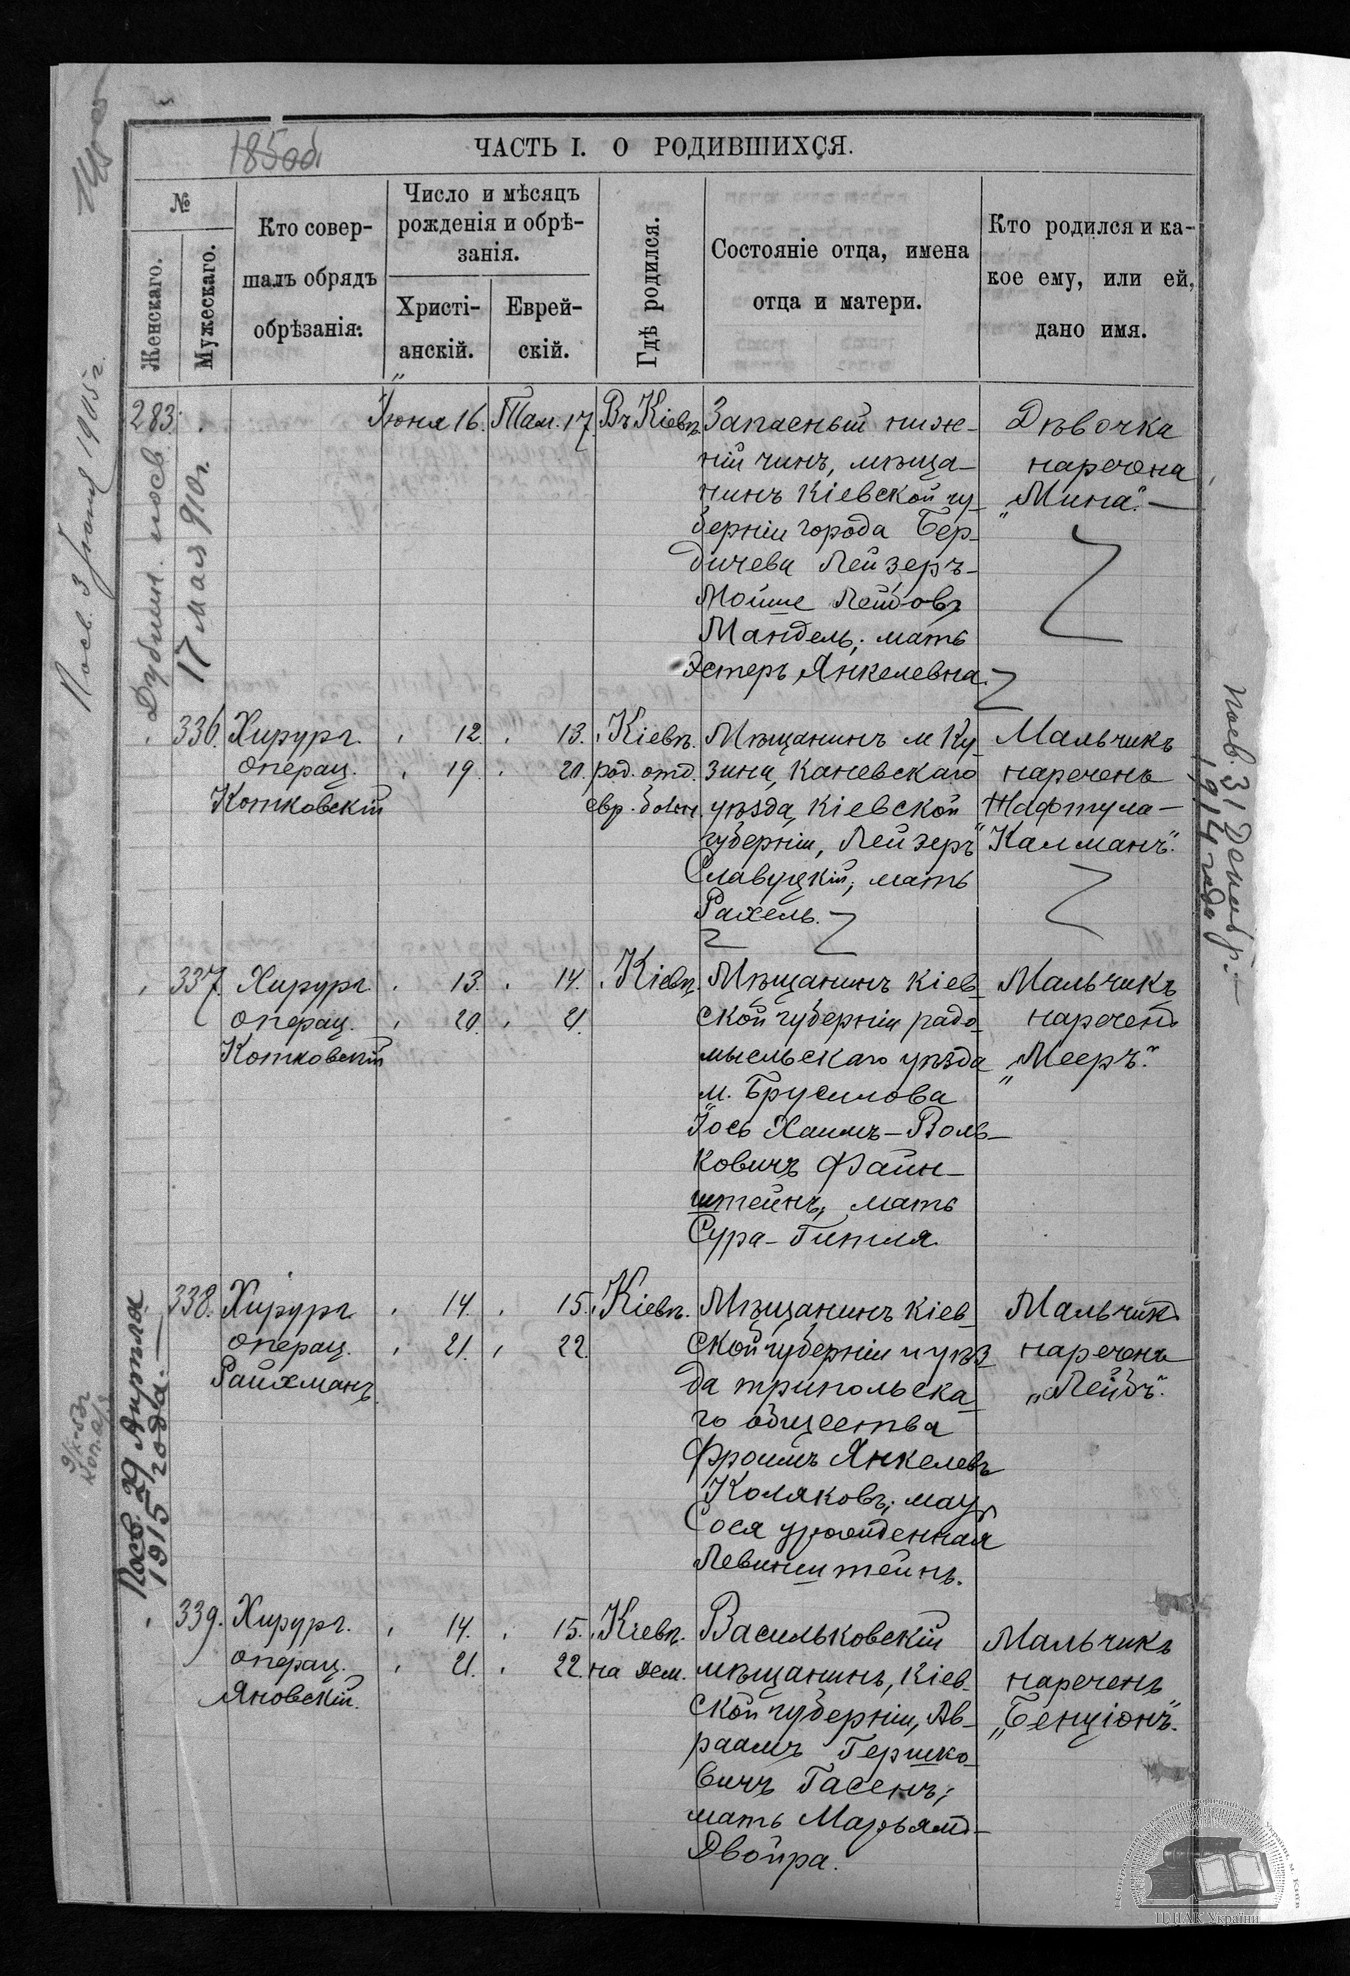 185об
ЧАСТЬ I. О РОДИВШИХСЯ.
№
Женскаго.
Мужескаго.
Кто совер-
шалъ обрядъ
обрѣзанія.
Число и мѣсяцъ
рожденія и обрѣ-
занія.
Христі-
анскій.
Еврей-
скій.
Гдѣ родился.
Состояніе отца, имена
отца и матери.
Кто родился и ка-
кое ему, или ей,
дано имя.
283.
Іюня 16. Там. 17.
Въ Кіевѣ.
Запасный ниж-
ній чинъ, мѣща-
нинъ Кіевской гу-
берніи города Бер-
дичева Лейзеръ-
Мойше Лейбовъ
Мандель, мать
Эстеръ Янкелевна.
Дѣвочка
наречена
„Мина“.—
Посв. 3
1905 г.
Дубликат. посв.
17 мая 910 г.
336.
Хирургъ
операц.
Котковскій
12. 13.
19. 20.
Кіевѣ.
род. отд.
евр. больн.
Мѣщанинъ м Ку-
зина, Каневскаго
уѣзда, Кіевской
губерніи, Лейзеръ
Славуцкій, мать
Рахель.
Мальчикъ
нареченъ
„Нафтула—
Калманъ“.
Посв. 31 Декабр.
1914 года
337.
Хирургъ
операц.
Котковскій
13. 14.
20. 21.
Кіевѣ.
Мѣщанинъ Кіев-
ской губерніи радо-
мысльскаго уѣзда
м. Брусилова
Іось Хаимъ-Воль-
ковичъ Файн-
штейнъ, мать
Сура-Гитля.
Мальчикъ
нареченъ
„Мееръ“.
338.
Хирургъ
операц.
Райхманъ
14. 15.
21. 22.
Кіевѣ.
Мѣщанинъ Кіев-
ской губерніи и уѣз-
да трипольска-
го общества
Фроимъ Янкелевъ
Коляковъ, мать
Сося урожденная
Левинштейнъ.
Мальчикъ
нареченъ
„Лейбъ“.
Посв. 29 Апрѣля
1915 года.—
339.
Хирургъ.
операц.
Яновскій.
14. 15.
21. 22.
Кіевѣ.
на Дем.
Васильковскій
мѣщанинъ, Кіев-
ской губерніи, Ав-
раамъ Гершко-
вичъ Гасенъ,
мать Марьямъ-
Двойра.
Мальчикъ
нареченъ
„Бенціонъ“.
ЦДІАК України